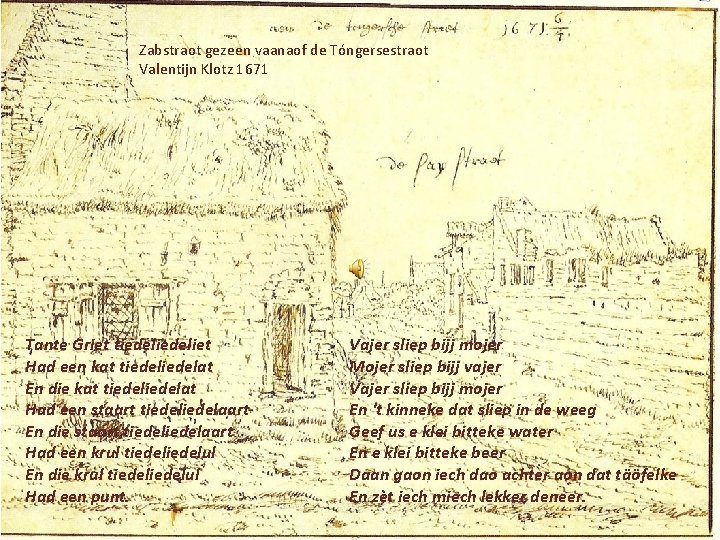 aen de tongersche straet 1671 6/4.
Zabstraot gezeen vaanaof de Tóngersestraot
Valentijn Klotz 1671
de Sap straet
Tante Griet tiedeliedeliet
Had een kat tiedeliedelat
En die kat tiedeliedelat
Had een staart tiedeliedelaart
En die staart tiedeliedelaart
Had een krul tiedeliedelul
En die krul tiedeliedelul
Had een punt.
Vajer sliep bijj mojer
Mojer sliep bijj vajer
Vajer sliep bijj mojer
En 't kinneke dat sliep in de weeg
Geef us e klei bitteke water
En e klei bitteke beer
Daan gaon iech dao achter aon dat täöfelke
En zèt iech miech lekker deneer.